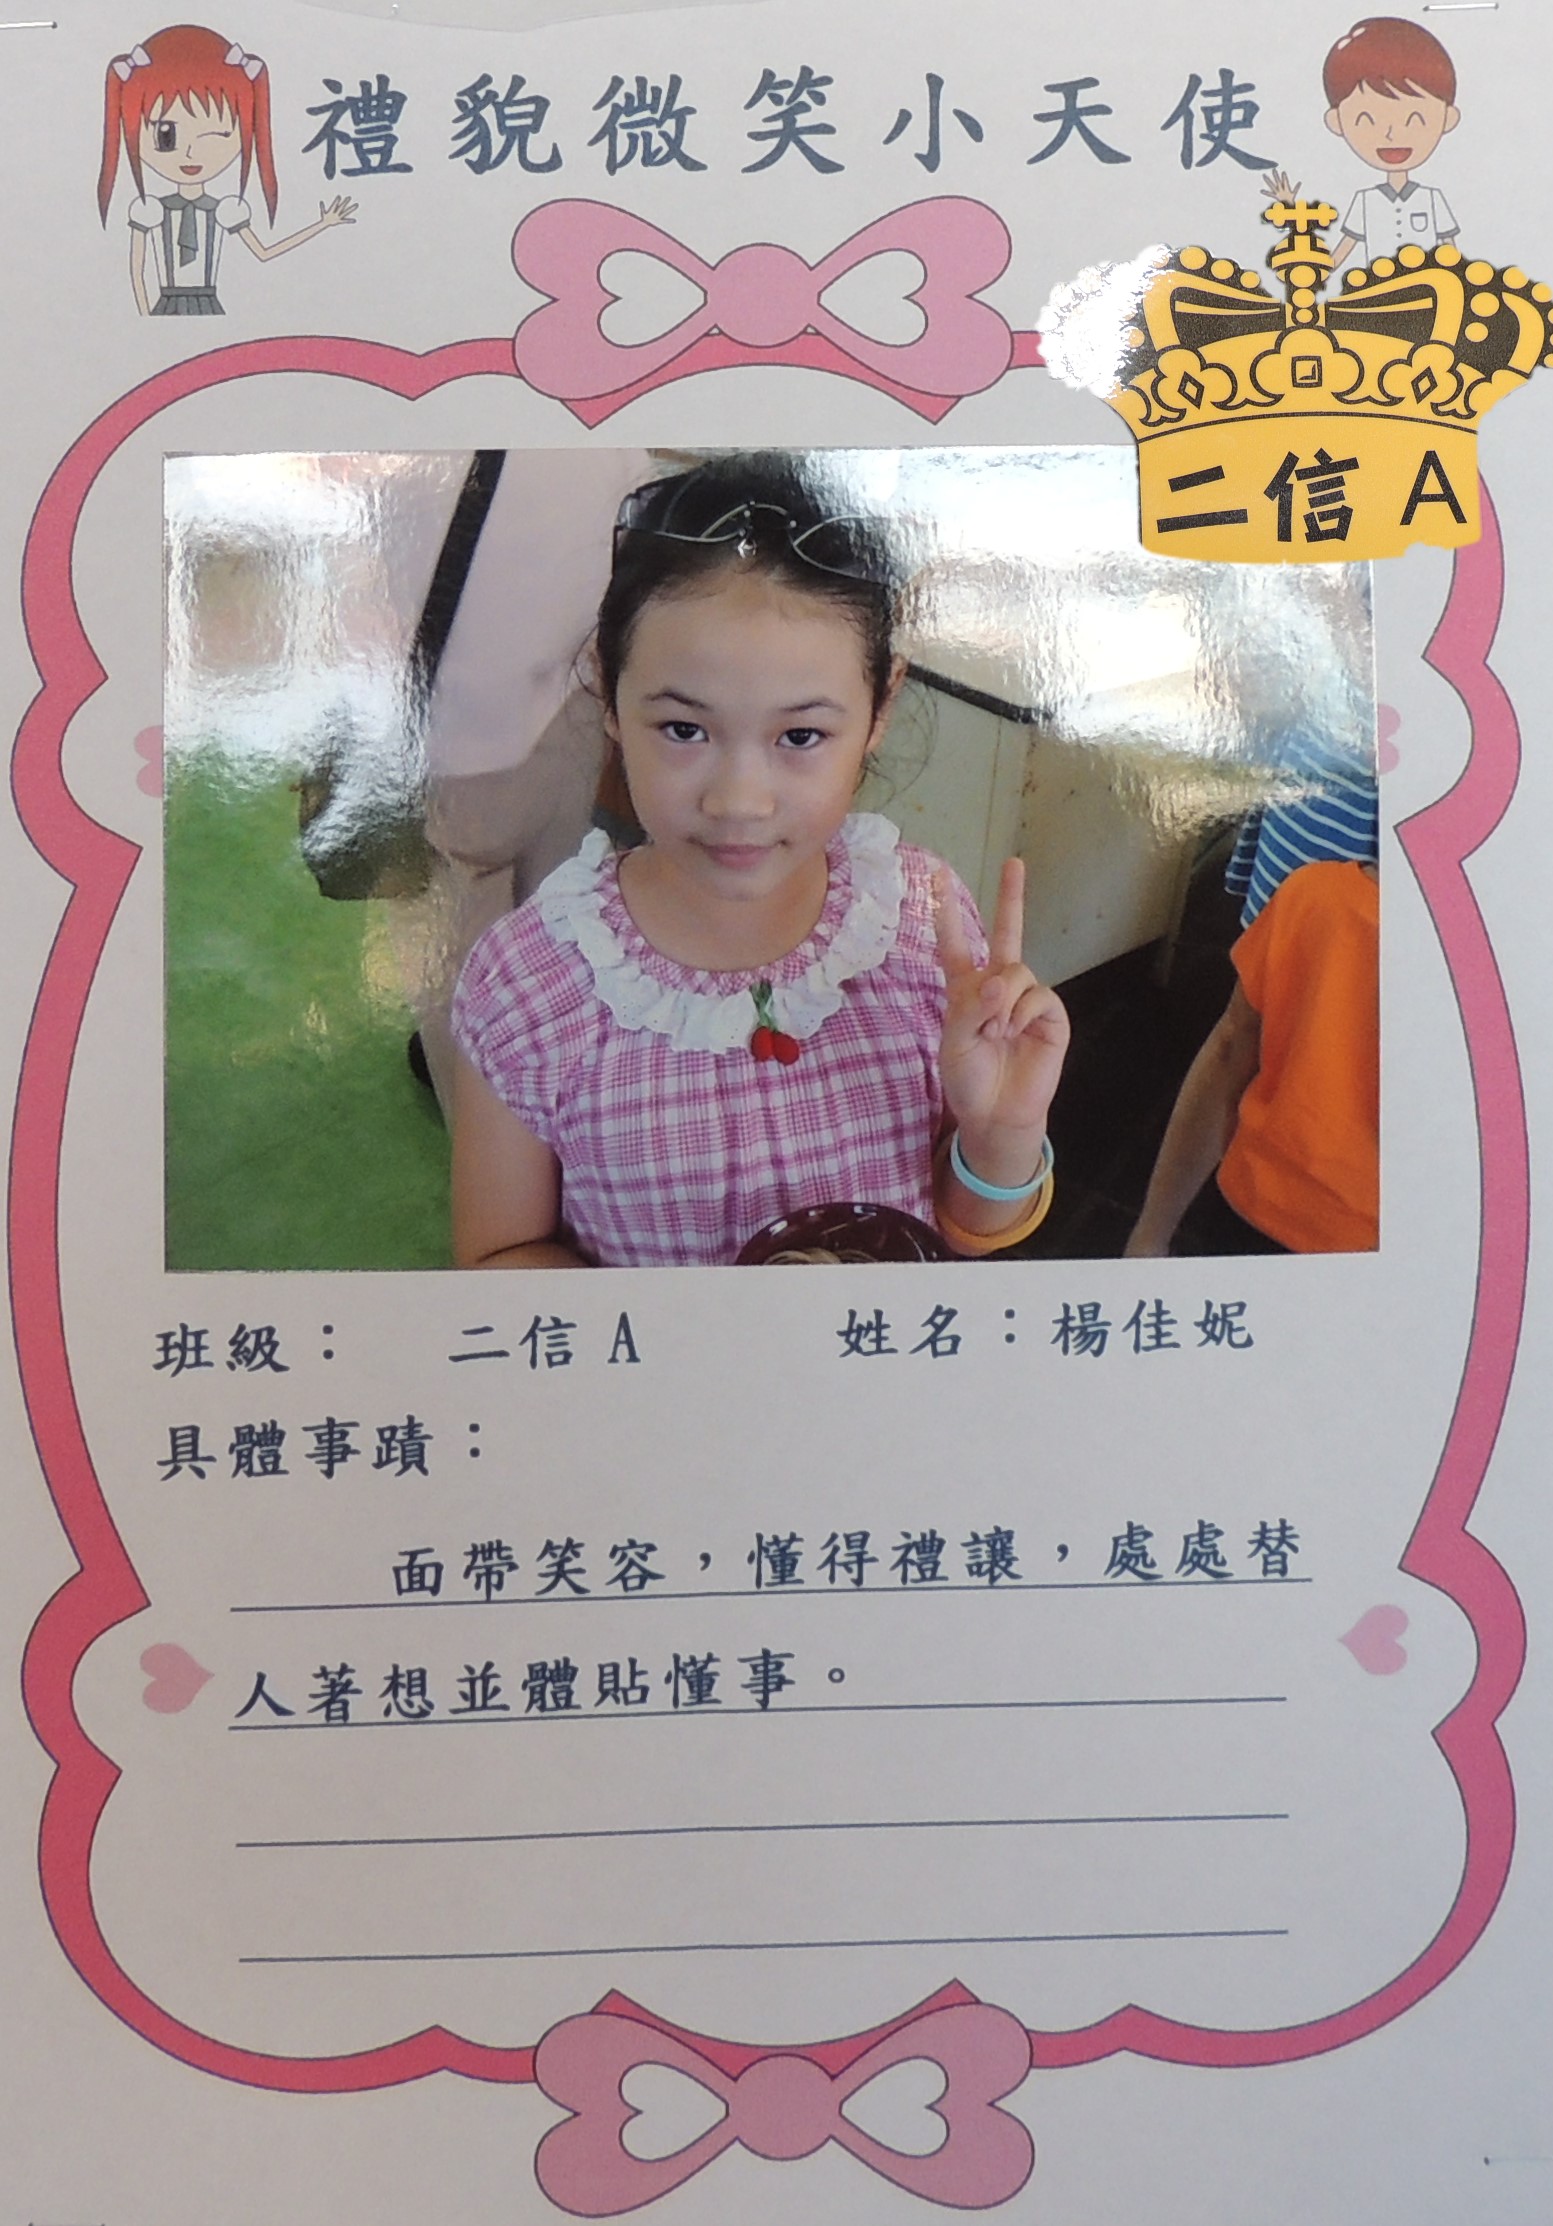 禮貌微笑小天使
二信 A
班級： 二信 A 姓名：楊佳妮
具體事蹟：
面帶笑容，懂得禮讓，處處替
人著想並體貼懂事。